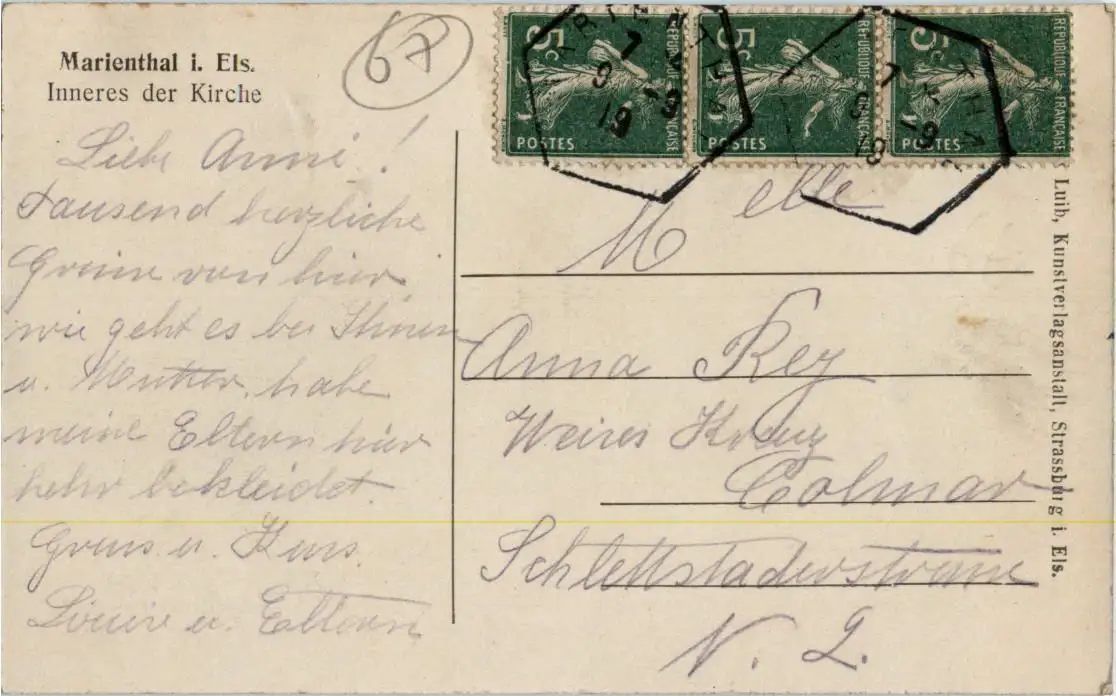 Marienthal i. Els.
Inneres der Kirche
67
Liebe Anni!
Tausend herzliche
Grüsse von hier,
wie geht es bei Ihnen
u. Mutter, habe
meine Eltern hier
bekleidet.
Gruss u. Kuss.
Louise u. Eltern
5c RÉPUBLIQUE FRANÇAISE POSTES
5c RÉPUBLIQUE FRANÇAISE POSTES
5c RÉPUBLIQUE FRANÇAISE POSTES
7
9 -9
19
7
9 -9
19
Melle
Anna Rey
Weises Kreuz
Colmar
Schlettstaderstrasse
N. 2.
Luib, Kunstverlagsanstalt, Strassburg i. Els.